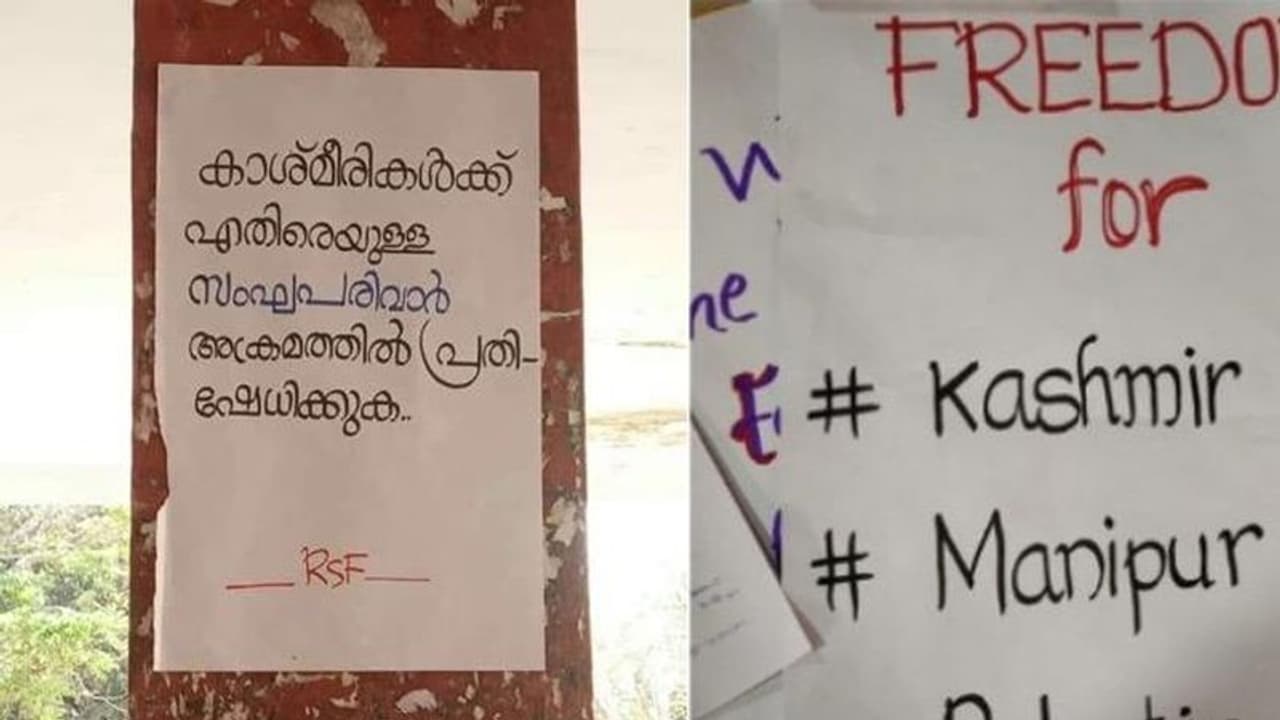 കാശ്മീരികൾക്ക്
എതിരെയുള്ള
സംഘപരിവാർ
അക്രമത്തിൽ പ്രതി-
ഷേധിക്കുക..
RSF
FREEDO
for
# Kashmir
# Manipur